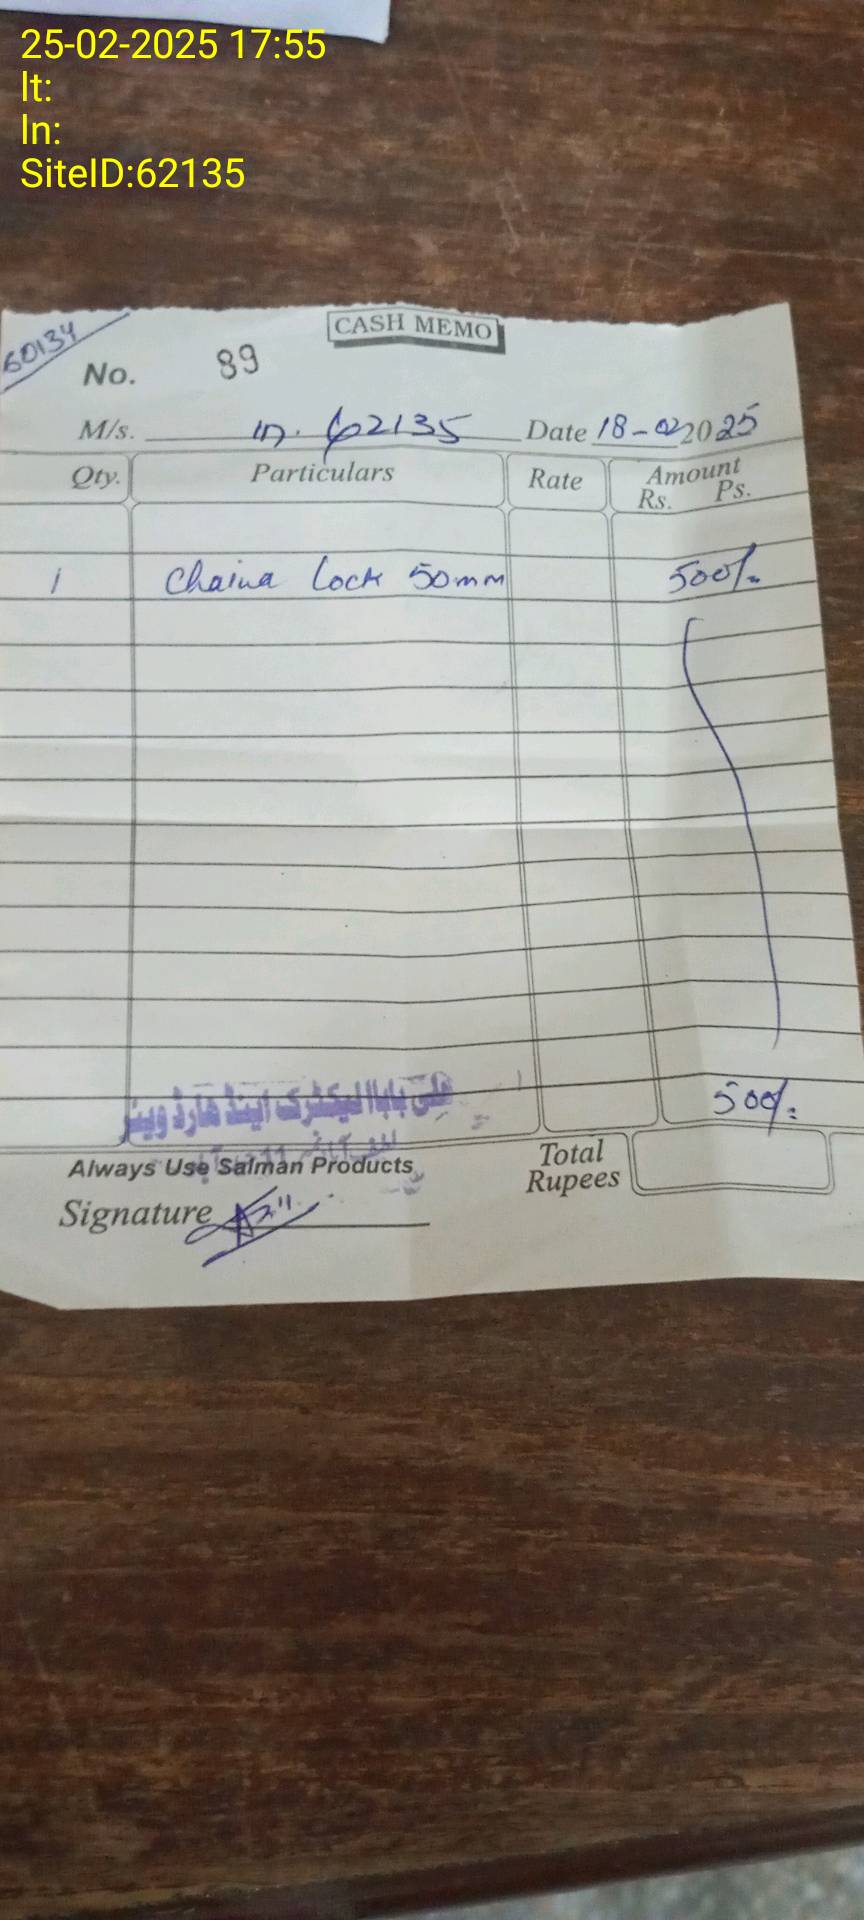 25-02-2025 17:55
lt:
ln:
SiteID:62135
60134
CASH MEMO
No. 89
M/s. in. 62135 Date 18-02 2025
Qty. Particulars Rate Amount
Rs. Ps.
1 Chaina Lock 50mm 500/-
علی بابا الیکٹرک اینڈ ہارڈ ویئر
500/-
Always Use Salman Products
Total
Rupees
Signature